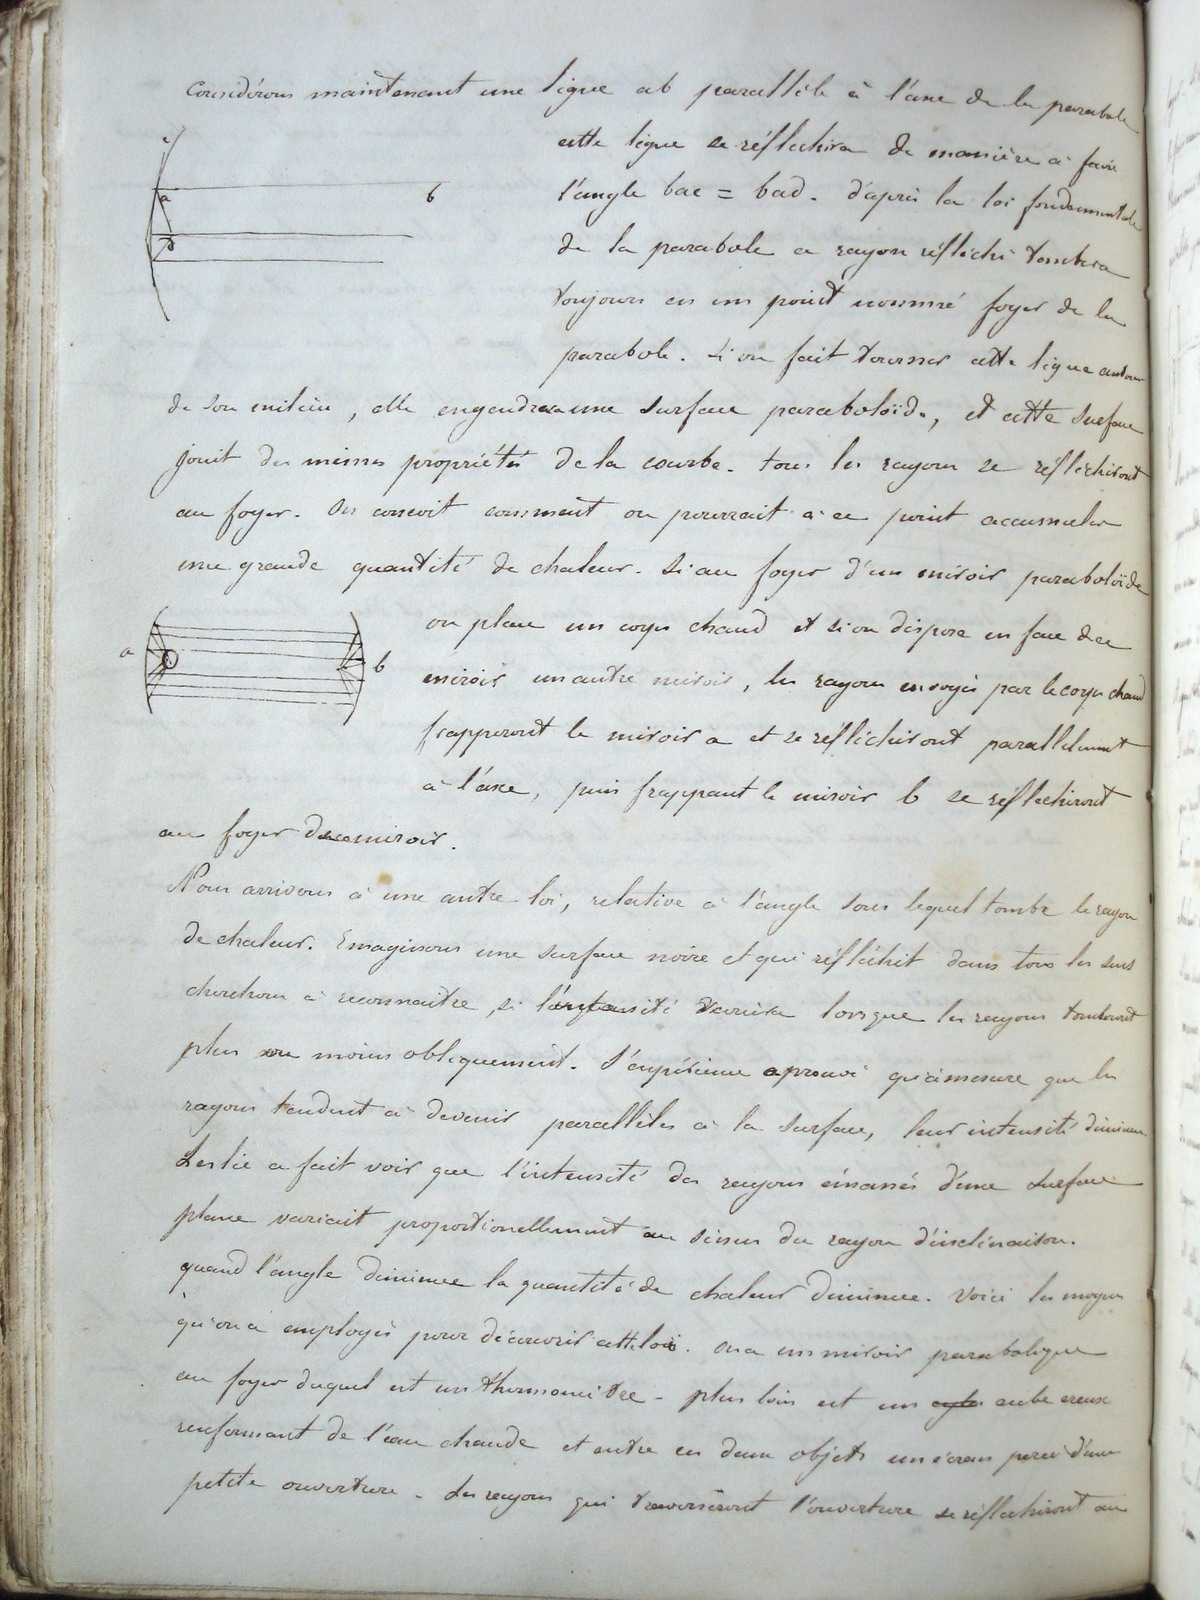 Considérons maintenant une ligne ab parallèle à l'axe de la parabole
cette ligne se réfléchira de manière à faire
l'angle bac = bad. d'après la loi fondamentale
de la parabole ce rayon réfléchi tombera
toujours en un point nommé foyer de la
parabole. Si on fait tourner cette ligne autour
de son milieu, elle engendrera une surface paraboloïde, et cette surface
jouit des mêmes propriétés de la courbe. tous les rayons se réfléchiront
au foyer. On conçoit comment on pourrait à ce point accumuler
une grande quantité de chaleur. Si au foyer d'un miroir paraboloïde
on place un corps chaud et si on dispose en face de ce
miroir un autre miroir, les rayons envoyés par le corps chaud
frapperont le miroir a et se réfléchiront parallèlement
à l'axe, puis frappant le miroir b se réfléchiront
au foyer de ce miroir.
Nous arrivons à une autre loi, relative à l'angle sous lequel tombe le rayon
de chaleur. Imaginons une surface noire et qui réfléchit dans tous les sens
cherchons à reconnaitre, si l'intensité variera lorsque les rayons tomberont
plus ou moins obliquement. L'expérience a prouvé qu'à mesure que les
rayons tendent à devenir parallèles à la surface, leur intensité diminue.
Leslie a fait voir que l'intensité des rayons émanés d'une surface
plane variait proportionellement au sinus du rayon d'inclinaison.
quand l'angle diminue la quantité de chaleur diminue. Voici les moyens
qu'on a employés pour découvrir cette loi. on a un miroir parabolique
au foyer duquel est un thermomètre - plus loin est un cube creux
renfermant de l'eau chaude et entre ces deux objets un écran percé d'une
petite ouverture - Les rayons qui traverseront l'ouverture se réfléchiront au
c
a
b
d
a
b